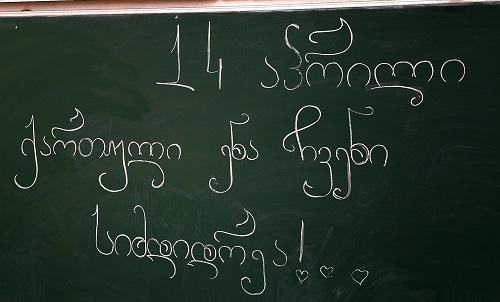 14 აპრილი
ქართული ენა ჩვენი
სიმდიდრეა!..